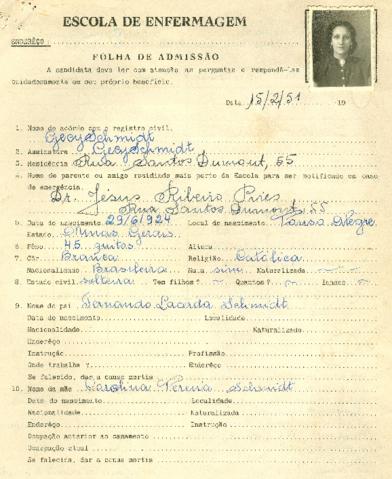 ESCOLA DE ENFERMAGEM
ENDERÊÇO
FOLHA DE ADMISSÃO
A candidata deve ler com atenção as perguntas e respondê-las
cuidadosamente em seu próprio benefício.
Data 15/2/51 19
1. Nome de acôrdo com o registro civil.
Gecy Schmidt
2. Assinatura Gecy Schmidt
3. Residência Rua Santos Dumont, 55
4. Nome de parente ou amigo residindo mais perto da Escola para ser notificado em caso
de emergência.
Dr. Jésus Ribeiro Pires
Rua Santos Dumont, 55
5. Data do nascimento 29/6/924 Local do nascimento Pouso Alegre
Estado Minas Gerais
6. Pêso 45 quilos Altura
7. Côr Branca Religião Católica
Nacionalidade Brasileira Nata sim Naturalizada
8. Estado civil solteira Tem filhos? Quantos? Idades
9. Nome do pai Fernando Lacerda Schmidt
Data do nascimento Localidade
Nacionalidade Naturalizado
Enderêço
Instrução Profissão
Onde trabalha? Enderêço
Se falecido, dar a causa mortis
10. Nome da mãe Carolina Pereira Schmidt
Data do nascimento Localidade
Nacionalidade Naturalizada
Enderêço Instrução
Ocupação anterior ao casamento
Ocupação atual
Se falecida, dar a causa mortis